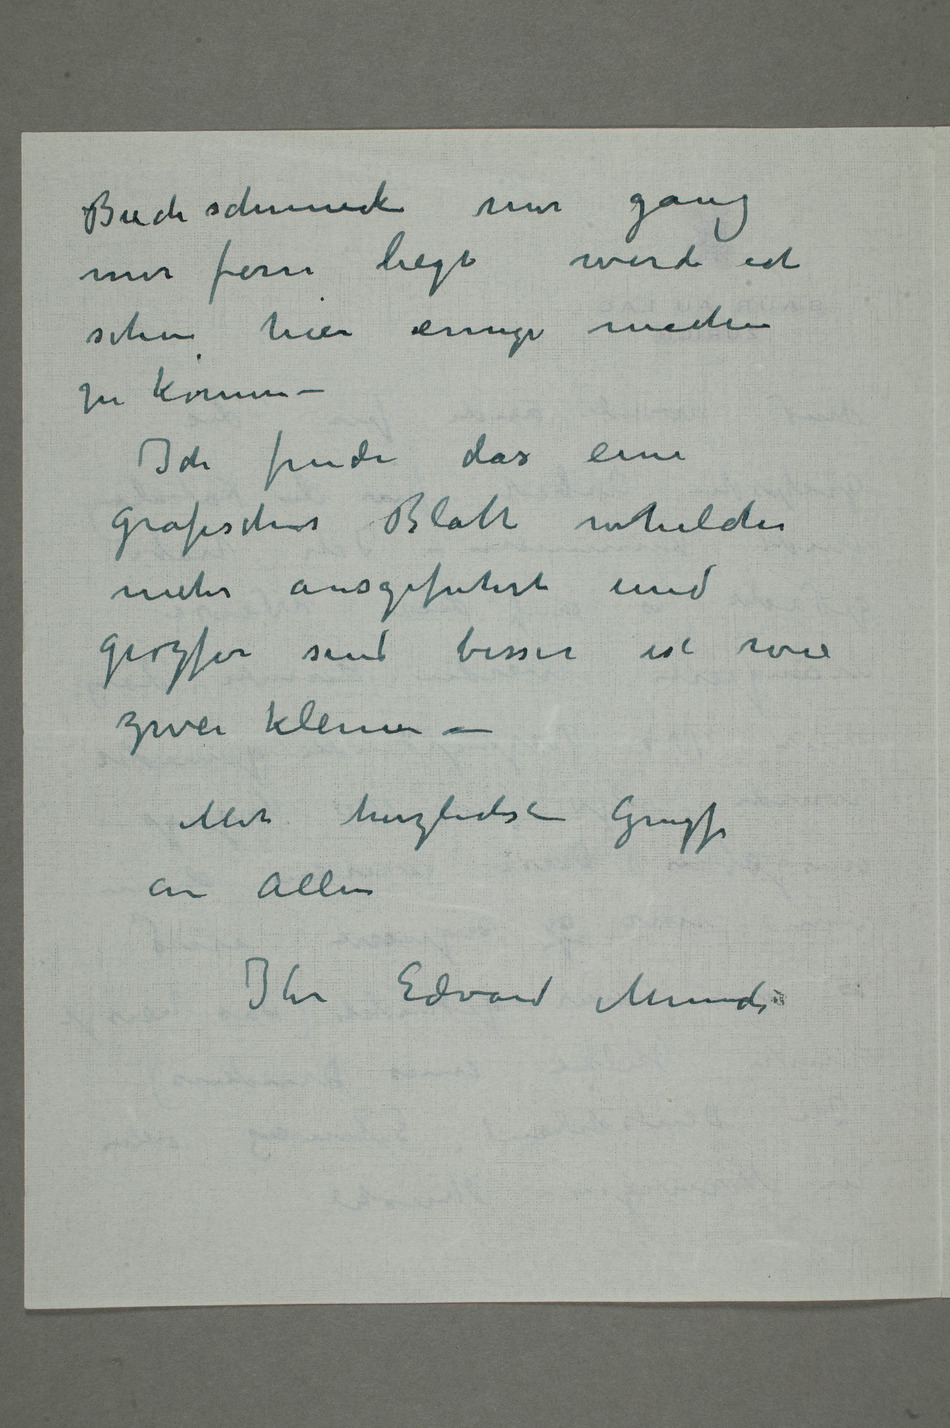 Buchschmuck mir ganz
mir fern liegt werde ich
schon hier einige machen
zu können –
Ich finde das eine
grafisches Blatt welches
mehr ausgefuhrt und
grözser sind besser ist wie
zwei kleine –
Mit herzlichste Gruzs
an Allen
Ihr Edvard Munch